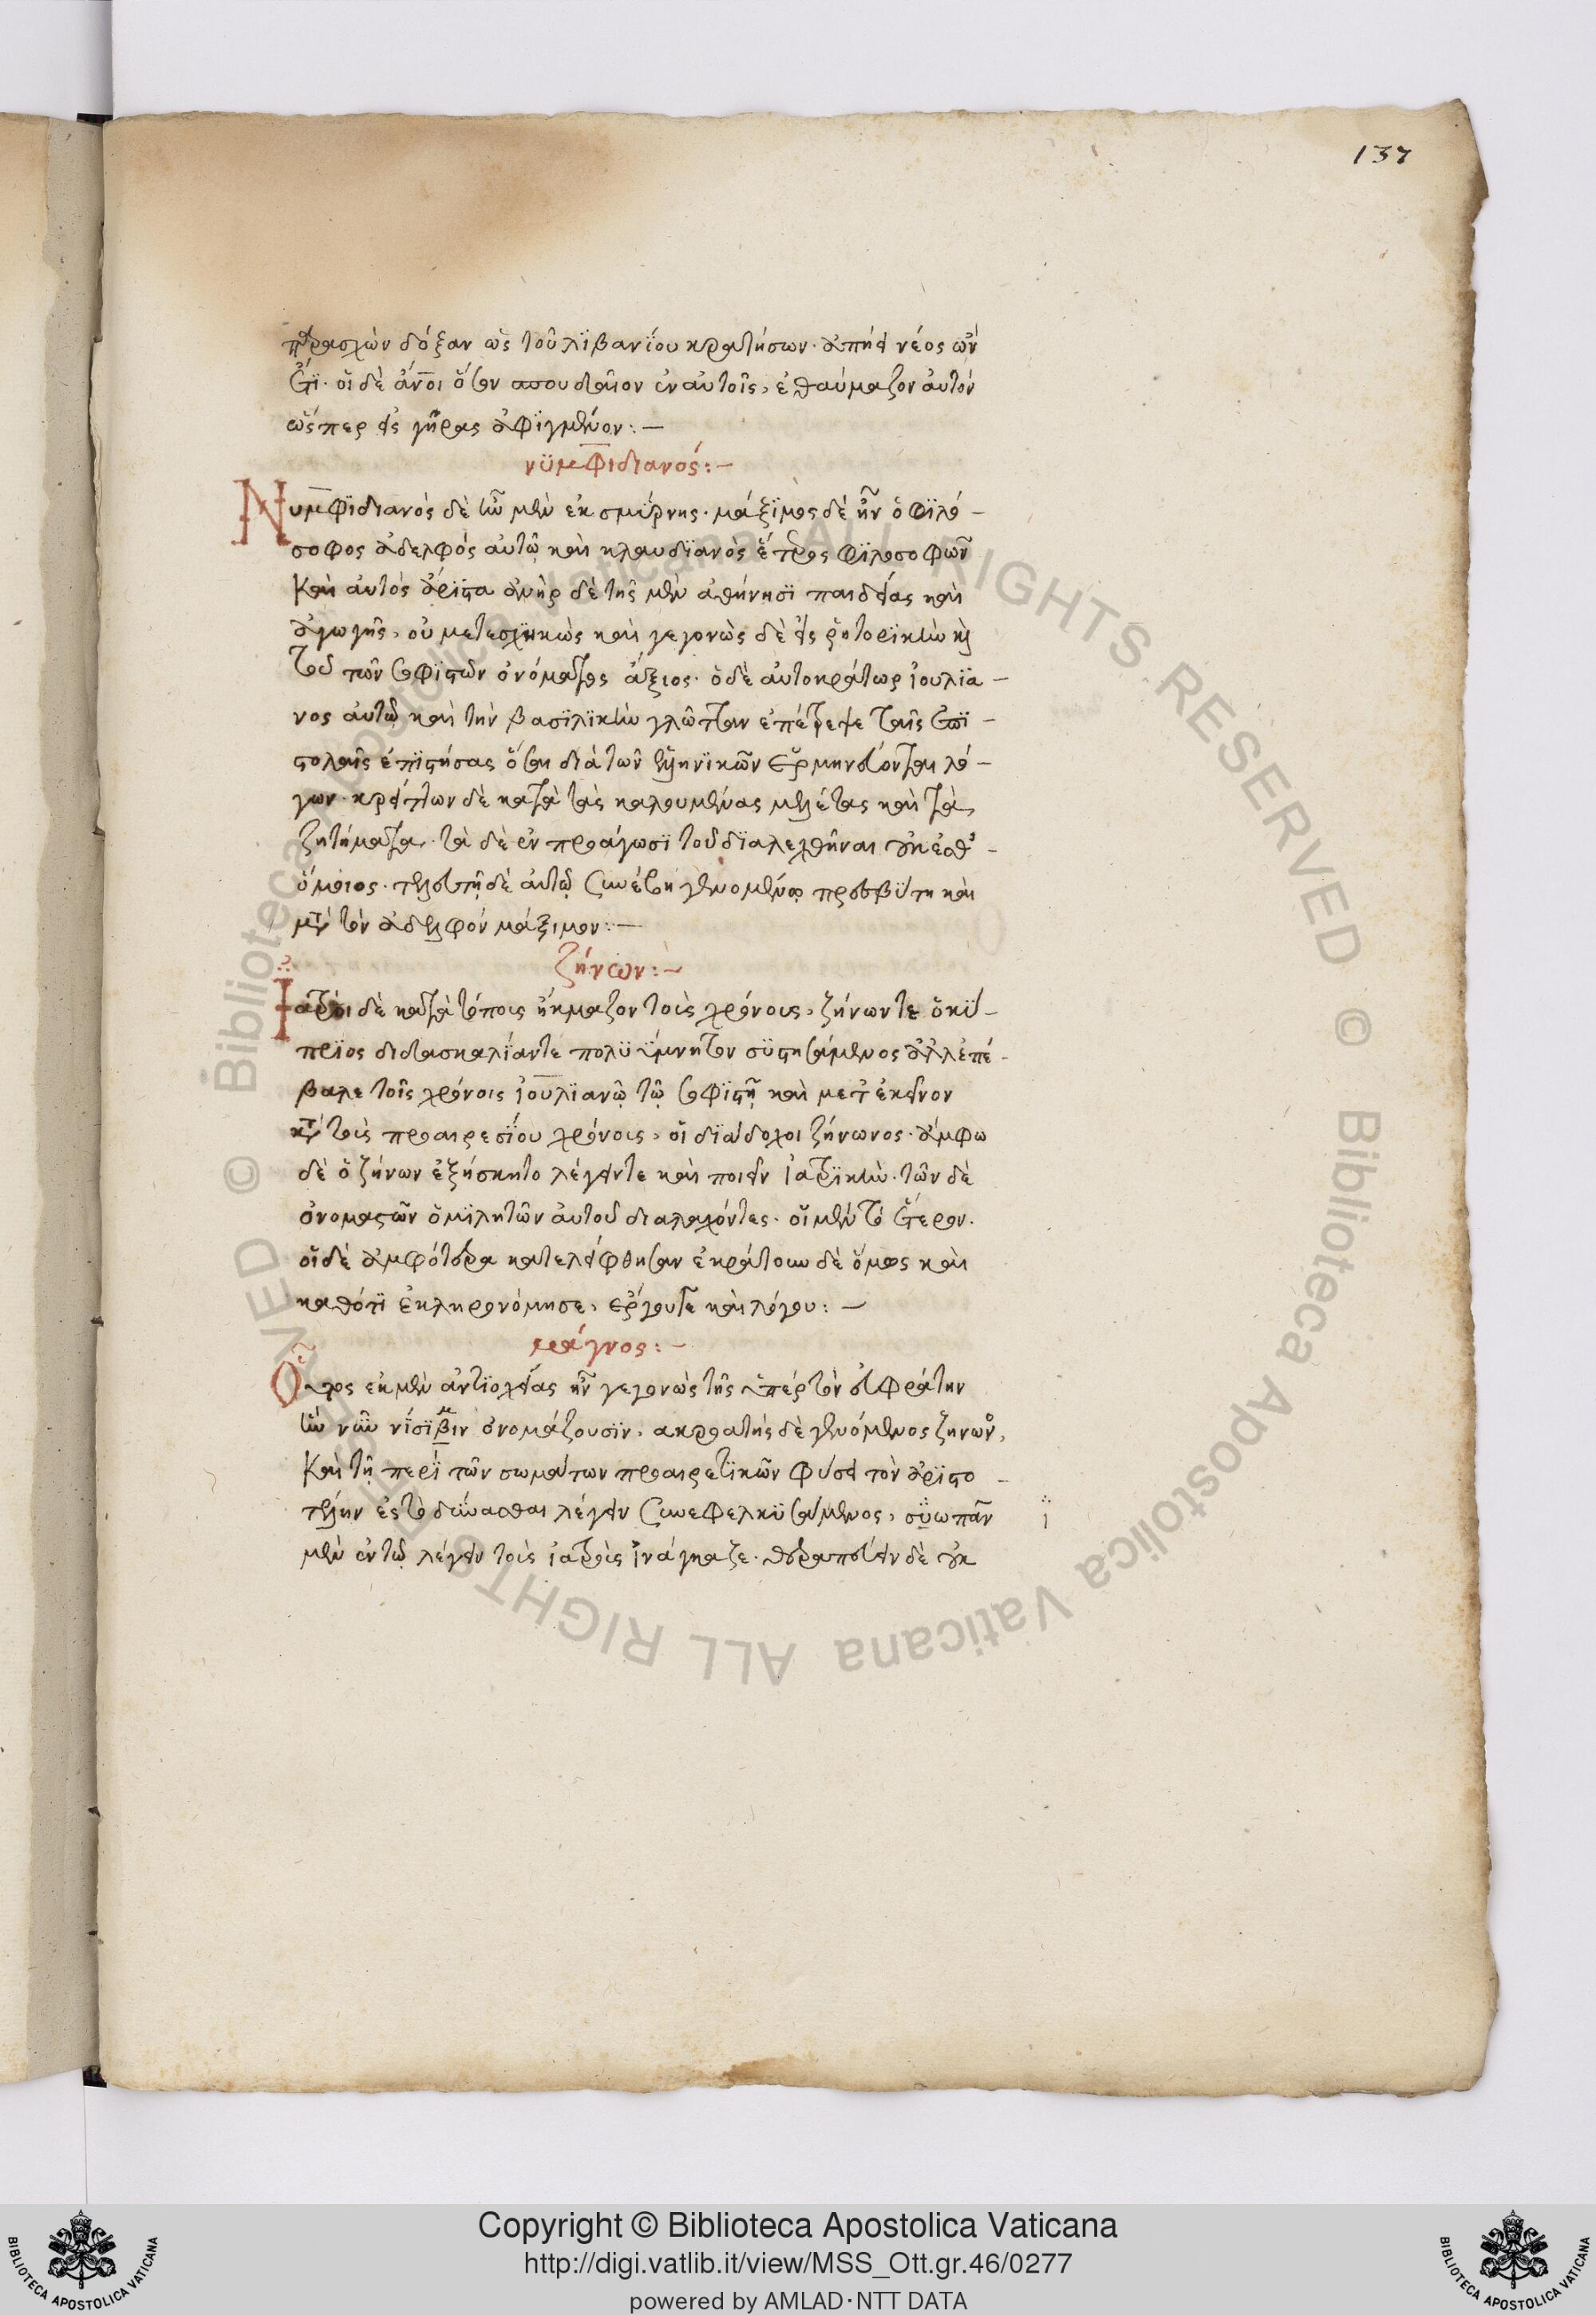 137
παρασχὼν δόξαν ὡς τοῦ λϊβανΐου κρατήσων· ἀπήει νέος ὢν
ἔτϊ· οἵ δὲ ἄνοι ὅσον σπουδαῖον ἐν αὐτοῖς, ἐθαύμαζον ἀυτὸν
ὥσπερ εἰς γῆρας ἀφϊγμένον:—
νϋμφιδιανός:—
Νυμφϊδιανὸς δὲ ἦν μὲν ἐκ σμΰρνης· μάξϊμος δὲ ἦν ὁ φϊλό-
σοφος ἀδελφὸς ἀυτῶ καὶ κλαυδϊανὸς ἕτερος φϊλοσοφῶν
καὶ ἀυτὸς ἄρϊστα ἀνὴρ δὲ τῆς μὲν ἀθήνησϊ παιδείας καὶ
ἀγωγῆς, οὐ μετεσχηκὼς καὶ γεγονὼς δὲ εἰς ῥητορϊκὴν καὶ
τοῦ τῶν σοφϊστῶν ὀνόματος ἄξιος· ὁ δὲ αὐτοκράτωρ ἰουλϊα-
νος ἀυτῶ καὶ τὴν βασϊλϊκὴν γλῶτταν ἐπέτρεψε ταῖς ἐπϊ-
στολαῖς ἐπϊστήσας ὅσαι διὰ τῶν ἑλληνϊκῶν ἑρμηνεύονται λό-
γων· κρείττων δὲ κατὰ τὰς καλουμένας μελέτας καὶ τὰ
ζητήματα· τὰ δὲ ἐν προάγωσϊ τοῦ δϊαλεχθῆναι οὐκέθ᾽-
ὅμοιος· τελευτὴ δὲ ἀυτῶ συνέβη γενομένω πρεσβύτη καὶ
μετὰ τὸν ἀδελφὸν μάξιμον:—
ζήνων:—
Ἰατροὶ δὲ κατὰ τόπους ἤκμαζον τοὺς χρόνους, ζήνων τε ὁ κϋ-
πρϊος διδασκαλΐαν τε πολϋϋμνητον σϋστησάμενος ἀλλ᾽ ἐπέ-
βαλε τοῖς χρόνοις ἰουλϊανῶ τῶ σοφϊστῆ καὶ μετ᾽ ἐκεῖνον
κατὰ τοὺς προαιρεσΐου χρόνους, οἱ δϊάδοχοι ζήνωνος· ἄμφω
δὲ ὁ ζήνων ἐξήσκητο λέγειν τε καὶ ποιεῖν ἰατρϊκὴν· τῶν δὲ
ὀνομαστῶν ὁμϊλητῶν ἀυτοῦ διαλαχόντες· οἱ μὲν τὸ ἕτερον·
οἱ δὲ ἀμφότερα κατελείφθησαν ἐκράτουν δὲ ὅμως καὶ
καθότϊ ἐκληρονόμησε, ἔργου τε καὶ λόγου:—
μάγνος:—
Οὗτος ἐκ μὲν ἀντϊοχείας ἦν γεγονὼς τῆς ὑπὲρ τὸν εὐφράτην
ἣν νῦν νΐσϊβιν ὀνομάζουσϊν, ακροατὴς δὲ γενόμενος ζηνων,
καὶ τῆ περὶ τῶν σωμάτων προαιρετϊκῶν φύσει τὸν ἀρϊστο-
τέλην ἐς τὸ δΰνασθαι λέγειν συνεφελκϋσάμενος, σϋωπᾶν
ϊ
μὲν ἐν τῶ λέγειν τοὺς ἰατροὺς ἠνάγκαζε· θεραπεύειν δὲ οὐκ
Copyright © Biblioteca Apostolica Vaticana
http://digi.vatlib.it/view/MSS_Ott.gr.46/0277
powered by AMLAD·NTT DATA
BIBLIOTECA APOSTOLICA VATICANA
BIBLIOTECA APOSTOLICA VATICANA
© Biblioteca Apostolica Vaticana ALL RIGHTS RESERVED © Biblioteca Apostolica Vaticana ALL RIGHTS RESERVED